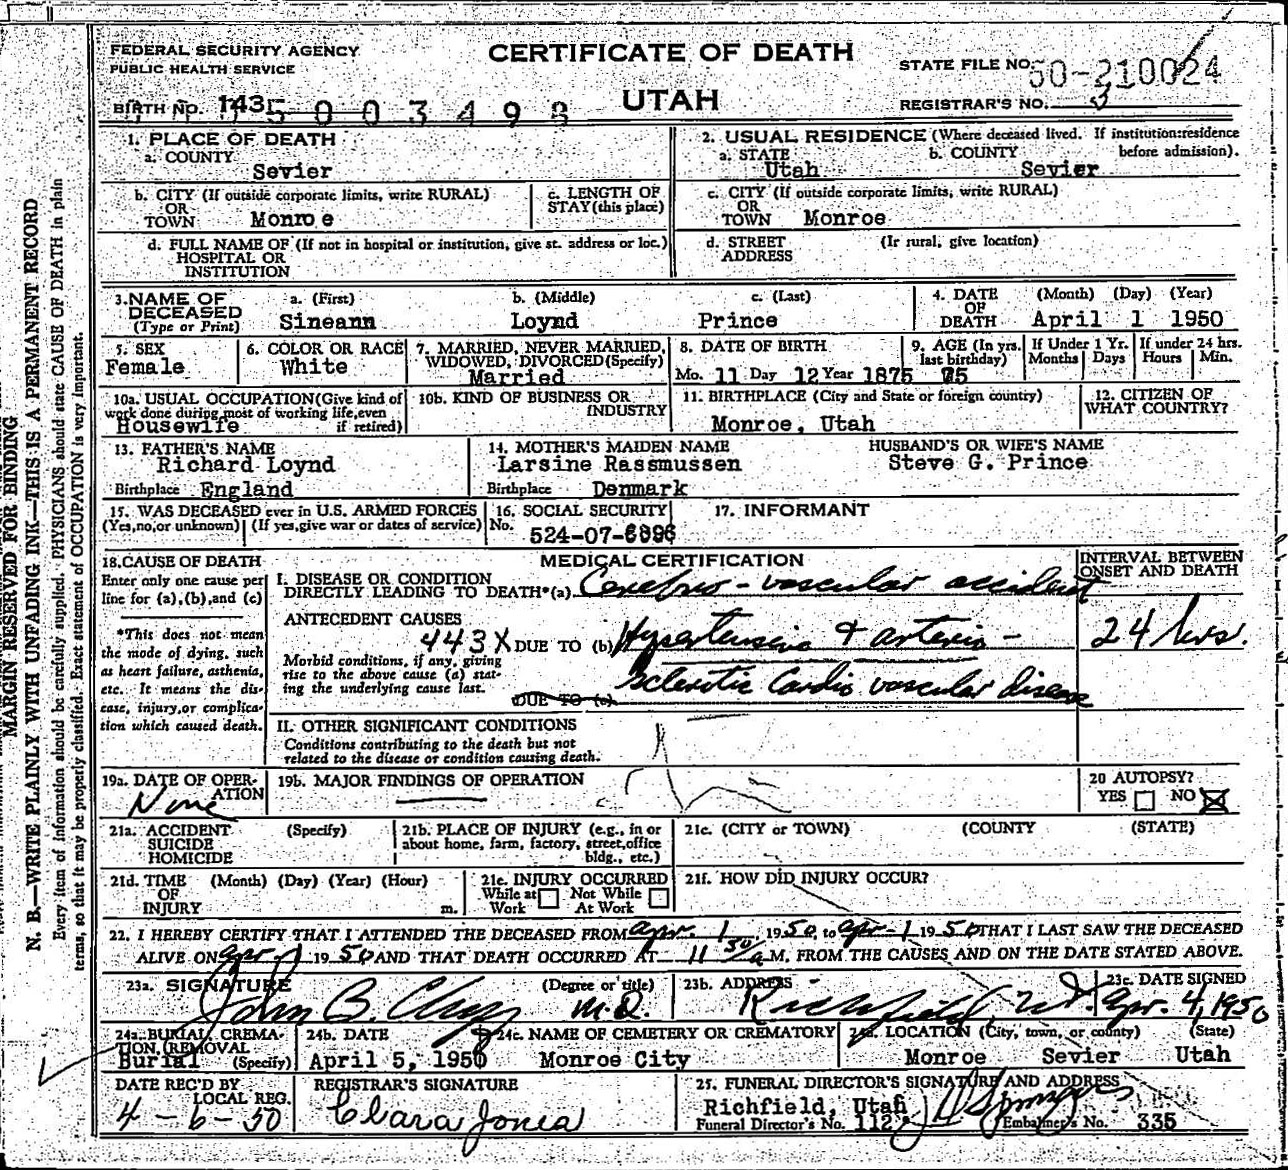 FEDERAL SECURITY AGENCY
PUBLIC HEALTH SERVICE
CERTIFICATE OF DEATH
STATE FILE NO. 50-210024
BIRTH NO. 143
5003498
UTAH
REGISTRAR'S NO. 3
MARGIN RESERVED FOR BINDING
N. B.—WRITE PLAINLY WITH UNFADING INK—THIS IS A PERMANENT RECORD
Every item of information should be carefully supplied. PHYSICIANS should state CAUSE OF DEATH in plain
terms, so that it may be properly classified. Exact statement of OCCUPATION is very important.
1. PLACE OF DEATH
a. COUNTY
Sevier
2. USUAL RESIDENCE (Where deceased lived. If institution:residence
before admission).
a. STATE Utah b. COUNTY Sevier
b. CITY (If outside corporate limits, write RURAL)
OR
TOWN Monroe
c. LENGTH OF
STAY (this place)
c. CITY (If outside corporate limits, write RURAL)
OR
TOWN Monroe
d. FULL NAME OF (If not in hospital or institution, give st. address or loc.)
HOSPITAL OR
INSTITUTION
d. STREET (Ir rural, give location)
ADDRESS
3. NAME OF
DECEASED
(Type or Print)
a. (First) b. (Middle) c. (Last)
Sineann Loynd Prince
4. DATE
OF
DEATH
(Month) (Day) (Year)
April 1 1950
5. SEX
Female
6. COLOR OR RACE
White
7. MARRIED, NEVER MARRIED,
WIDOWED, DIVORCED (Specify)
Married
8. DATE OF BIRTH
Mo. 11 Day 12 Year 1875
9. AGE (In yrs.
last birthday)
75
If Under 1 Yr.
Months Days
If under 24 hrs.
Hours Min.
10a. USUAL OCCUPATION (Give kind of
work done during most of working life, even
if retired)
Housewife
10b. KIND OF BUSINESS OR
INDUSTRY
11. BIRTHPLACE (City and State or foreign country)
Monroe, Utah
12. CITIZEN OF
WHAT COUNTRY?
13. FATHER'S NAME
Richard Loynd
Birthplace England
14. MOTHER'S MAIDEN NAME
Larsine Rassmussen
Birthplace Denmark
HUSBAND'S OR WIFE'S NAME
Steve G. Prince
15. WAS DECEASED ever in U.S. ARMED FORCES
(Yes, no, or unknown) (If yes, give war or dates of service)
16. SOCIAL SECURITY
No. 524-07-6896
17. INFORMANT
18. CAUSE OF DEATH
Enter only one cause per
line for (a), (b), and (c)
*This does not mean
the mode of dying, such
as heart failure, asthenia,
etc. It means the dis-
ease, injury, or complica-
tion which caused death.
MEDICAL CERTIFICATION
I. DISEASE OR CONDITION
DIRECTLY LEADING TO DEATH*(a) Cerebro-vascular accident
ANTECEDENT CAUSES
443X DUE TO (b) Hypertensive & arterio-
Morbid conditions, if any, giving
rise to the above cause (a) stat-
ing the underlying cause last.
sclerotic Cardio vascular disease
DUE TO (c)
INTERVAL BETWEEN
ONSET AND DEATH
24 hrs.
II. OTHER SIGNIFICANT CONDITIONS
Conditions contributing to the death but not
related to the disease or condition causing death.
19a. DATE OF OPER-
ATION
None
19b. MAJOR FINDINGS OF OPERATION
20 AUTOPSY?
YES NO
21a. ACCIDENT (Specify)
SUICIDE
HOMICIDE
21b. PLACE OF INJURY (e.g., in or
about home, farm, factory, street, office
bldg., etc.)
21c. (CITY or TOWN) (COUNTY (STATE)
21d. TIME (Month) (Day) (Year) (Hour)
OF
INJURY m.
21e. INJURY OCCURRED
While at Not While
Work At Work
21f. HOW DID INJURY OCCUR?
22. I HEREBY CERTIFY THAT I ATTENDED THE DECEASED FROM Apr. 1 1950, to Apr-1 1950 THAT I LAST SAW THE DECEASED
ALIVE ON Apr-1 1950 AND THAT DEATH OCCURRED AT 11 30/a M. FROM THE CAUSES AND ON THE DATE STATED ABOVE.
23a. SIGNATURE (Degree or title)
John B. M.D.
23b. ADDRESS
Richfield, Ut.
23c. DATE SIGNED
Apr. 4, 1950
24a. BURIAL, CREMA-
TION (REMOVAL
Burial (Specify)
24b. DATE
April 5, 1950
24c. NAME OF CEMETERY OR CREMATORY
Monroe City
24d. LOCATION (City, town, or county) (State)
Monroe Sevier Utah
DATE REC'D BY
LOCAL REG.
4-6-50
REGISTRAR'S SIGNATURE
Clara Jones
25. FUNERAL DIRECTOR'S SIGNATURE AND ADDRESS
Richfield, Utah
Funeral Director's No. 112 Embalmer's No. 335